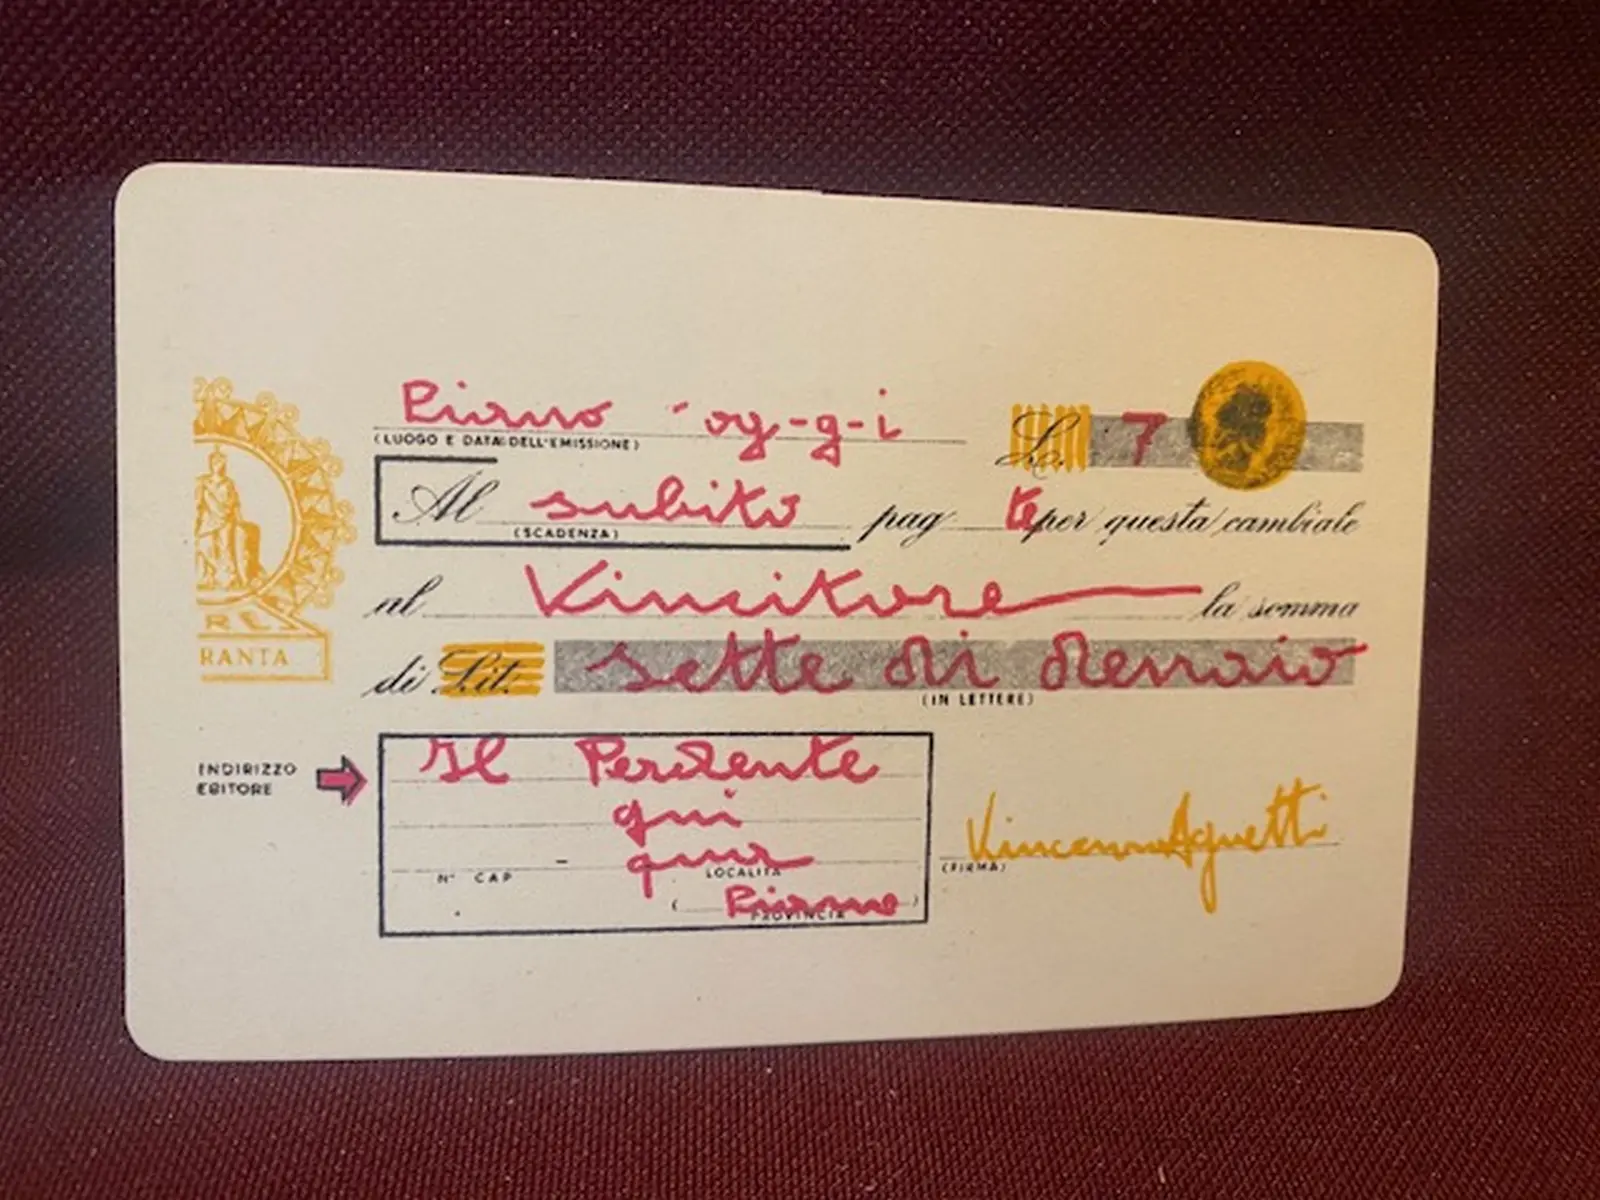 Piano - og-g-i L. 7
(LUOGO E DATA DELL'EMISSIONE)
Al subito pag te per questa cambiale
(SCADENZA)
al Vincitore la somma
di Lit. sette di denaio
(IN LETTERE)
RANTA
INDIRIZZO
EBITORE
Il Perdente
qui
qua
N° CAP - LOCALITÀ
( Piano )
PROVINCIA
Vincenzo Agnetti
(FIRMA)